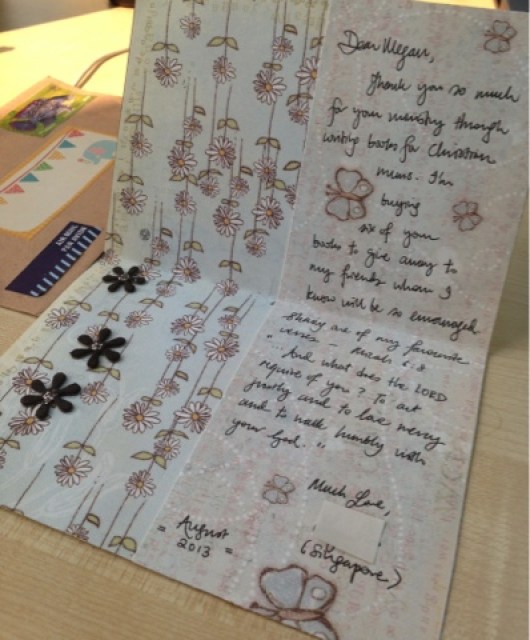 AIR MAIL
PAR AVION
Dear Megan,
Thank you so much
for your ministry through
writing books for Christian
mums. I'm
buying
six of your
books to give away to
my friends whom I
know will be so encouraged
Sharing one of my favourite
verses - Micah 6:8
"... And what does the LORD
require of you? To act
justly and to love mercy
and to walk humbly with
your God."
Much Love,
(Singapore)
= August
2013 =